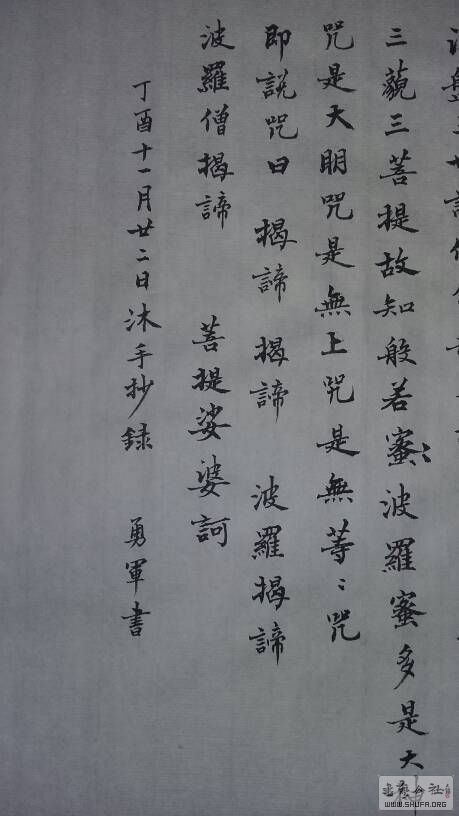 三藐三菩提故知般若蜜⺀波羅蜜多是大神
咒是大明咒是無上咒是無等⺀咒
即說咒曰 揭諦 揭諦 波羅揭諦
波羅僧揭諦 菩提娑婆訶
丁酉十一月廿二日沐手抄録 勇軍書
WWW.SHUFA.ORG